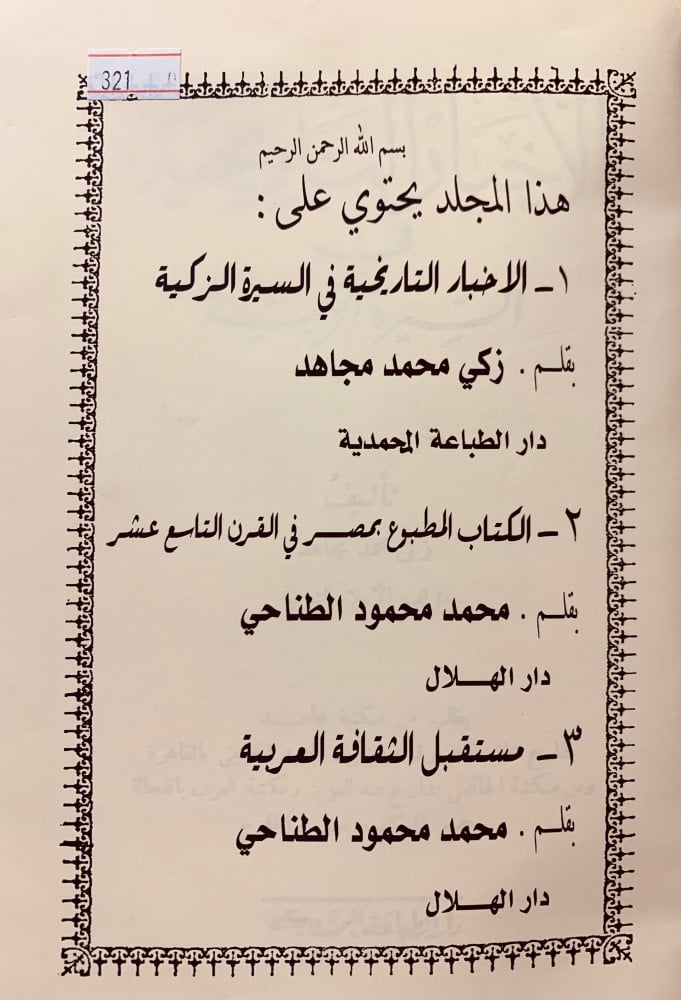 321
بسم الله الرحمن الرحيم
هذا المجلد يحتوي على :
١ - الاخبار التاريخية في السيرة الزكية
بقلم . زكي محمد مجاهد
دار الطباعة المحمدية
٢ - الكتاب المطبوع بمصر في القرن التاسع عشر
بقلم . محمد محمود الطناحي
دار الهلال
٣ - مستقبل الثقافة العربية
بقلم . محمد محمود الطناحي
دار الهلال